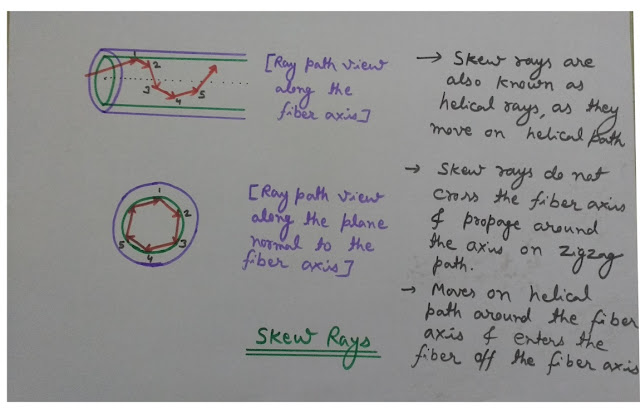 1
2
3
4
5
[Ray path view
along the
fiber axis]
→ Skew rays are
also known as
helical rays, as they
move on helical path
1
2
3
4
5
[Ray path view
along the plane
normal to the
fiber axis]
→ Skew rays do not
cross the fiber axis
& propage around
the axis on zigzag
path.
→ Moves on helical
path around the fiber
axis & enters the
fiber off the fiber axis
Skew Rays